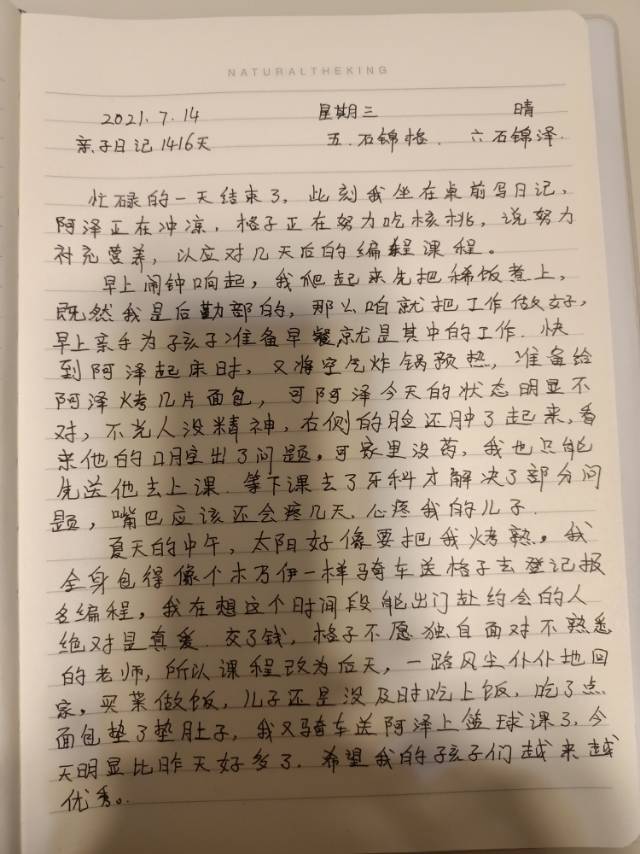 NATURALTHEKING
2021.7.14 星期三 晴
亲子日记1416天 五.石锦格. 六石锦泽.
忙碌的一天结束了,此刻我坐在桌前写日记,
阿泽正在冲凉,格子正在努力吃核桃,说努力
补充营养,以应对几天后的编程课程。
早上闹钟响起,我爬起来先把稀饭煮上,
既然我是后勤部的,那么咱就把工作做好,
早上亲手为孩子准备早餐就是其中的工作.快
到阿泽起床时,又将空气炸锅预热,准备给
阿泽烤几片面包,可阿泽今天的状态明显不
对,不光人没精神,右侧的脸还肿了起来,看
来他的口腔出了问题,可家里没药,我也只能
先送他去上课.等下课去了牙科才解决了部分问
题,嘴巴应该还会疼几天.心疼我的儿子.
夏天的中午,太阳好像要把我烤熟,我
全身包得像个木乃伊一样骑车送格子去登记报
名编程,我在想这个时间段能出门赴约会的人
绝对是真爱.交了钱,格子不愿独自面对不熟悉
的老师,所以课程改为后天,一路风尘仆仆地回
家,买菜做饭,儿子还是没及时吃上饭,吃了点
面包垫了垫肚子,我又骑车送阿泽上篮球课了.今
天明显比昨天好多了.希望我的孩子们越来越
优秀。